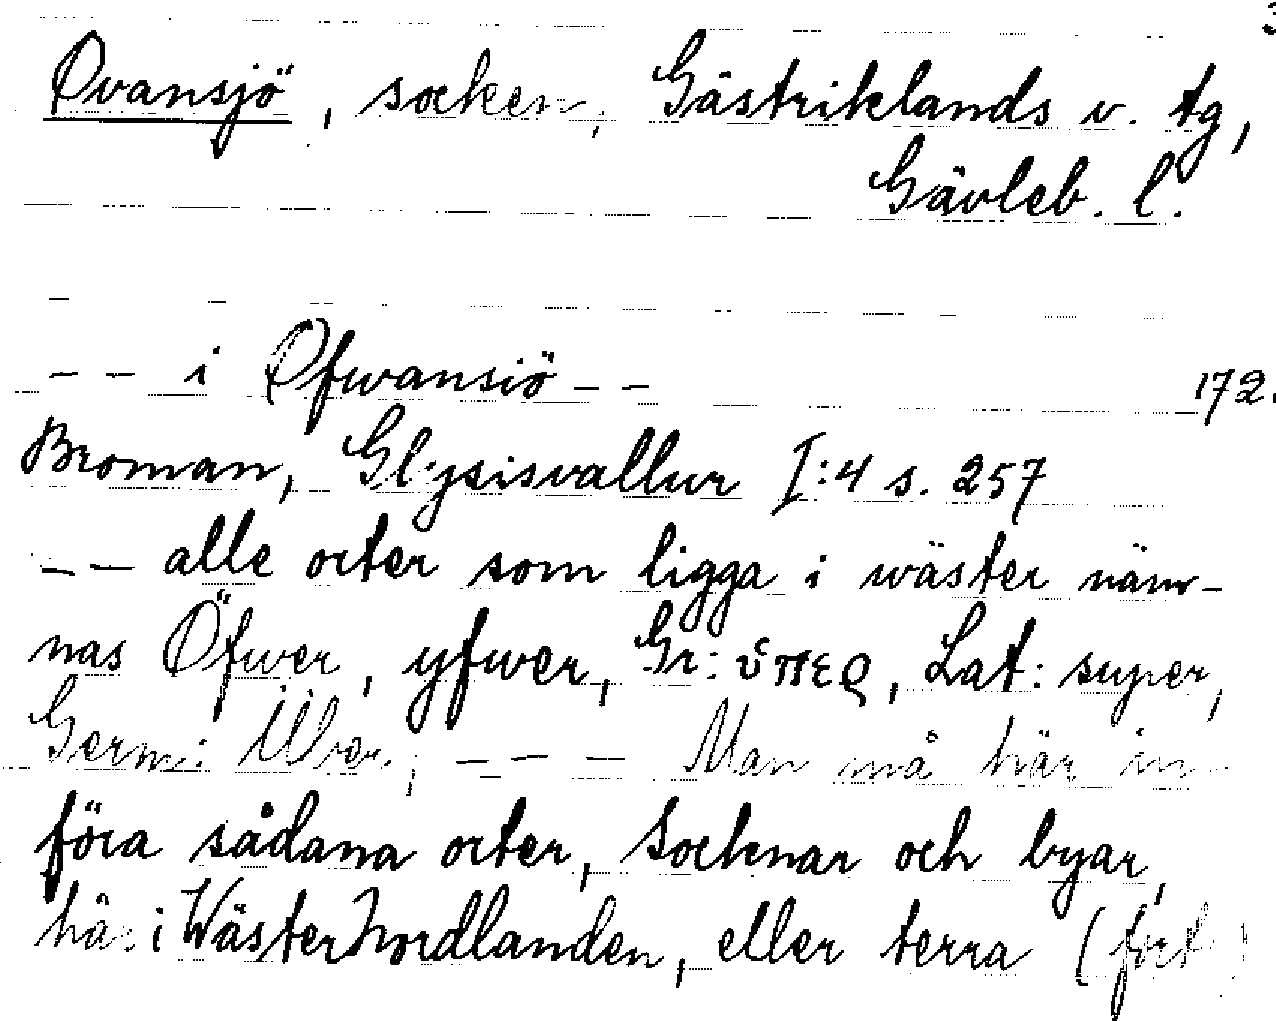 Ovansjö, socken, Gästriklands v. tg,
Gävleb. l.
-- i Ofwansiö -- 172.
Broman, Glysisvallur I:4 s. 257
-- alle orter som ligga i wäster näm-
nas Öfwer, yfwer, Gr: ὑπερ, Lat: super,
Germ: Über, --- Man må här in-
föra sådana orter, Socknar och byar,
här i WästerNordlanden, eller terra (forts)